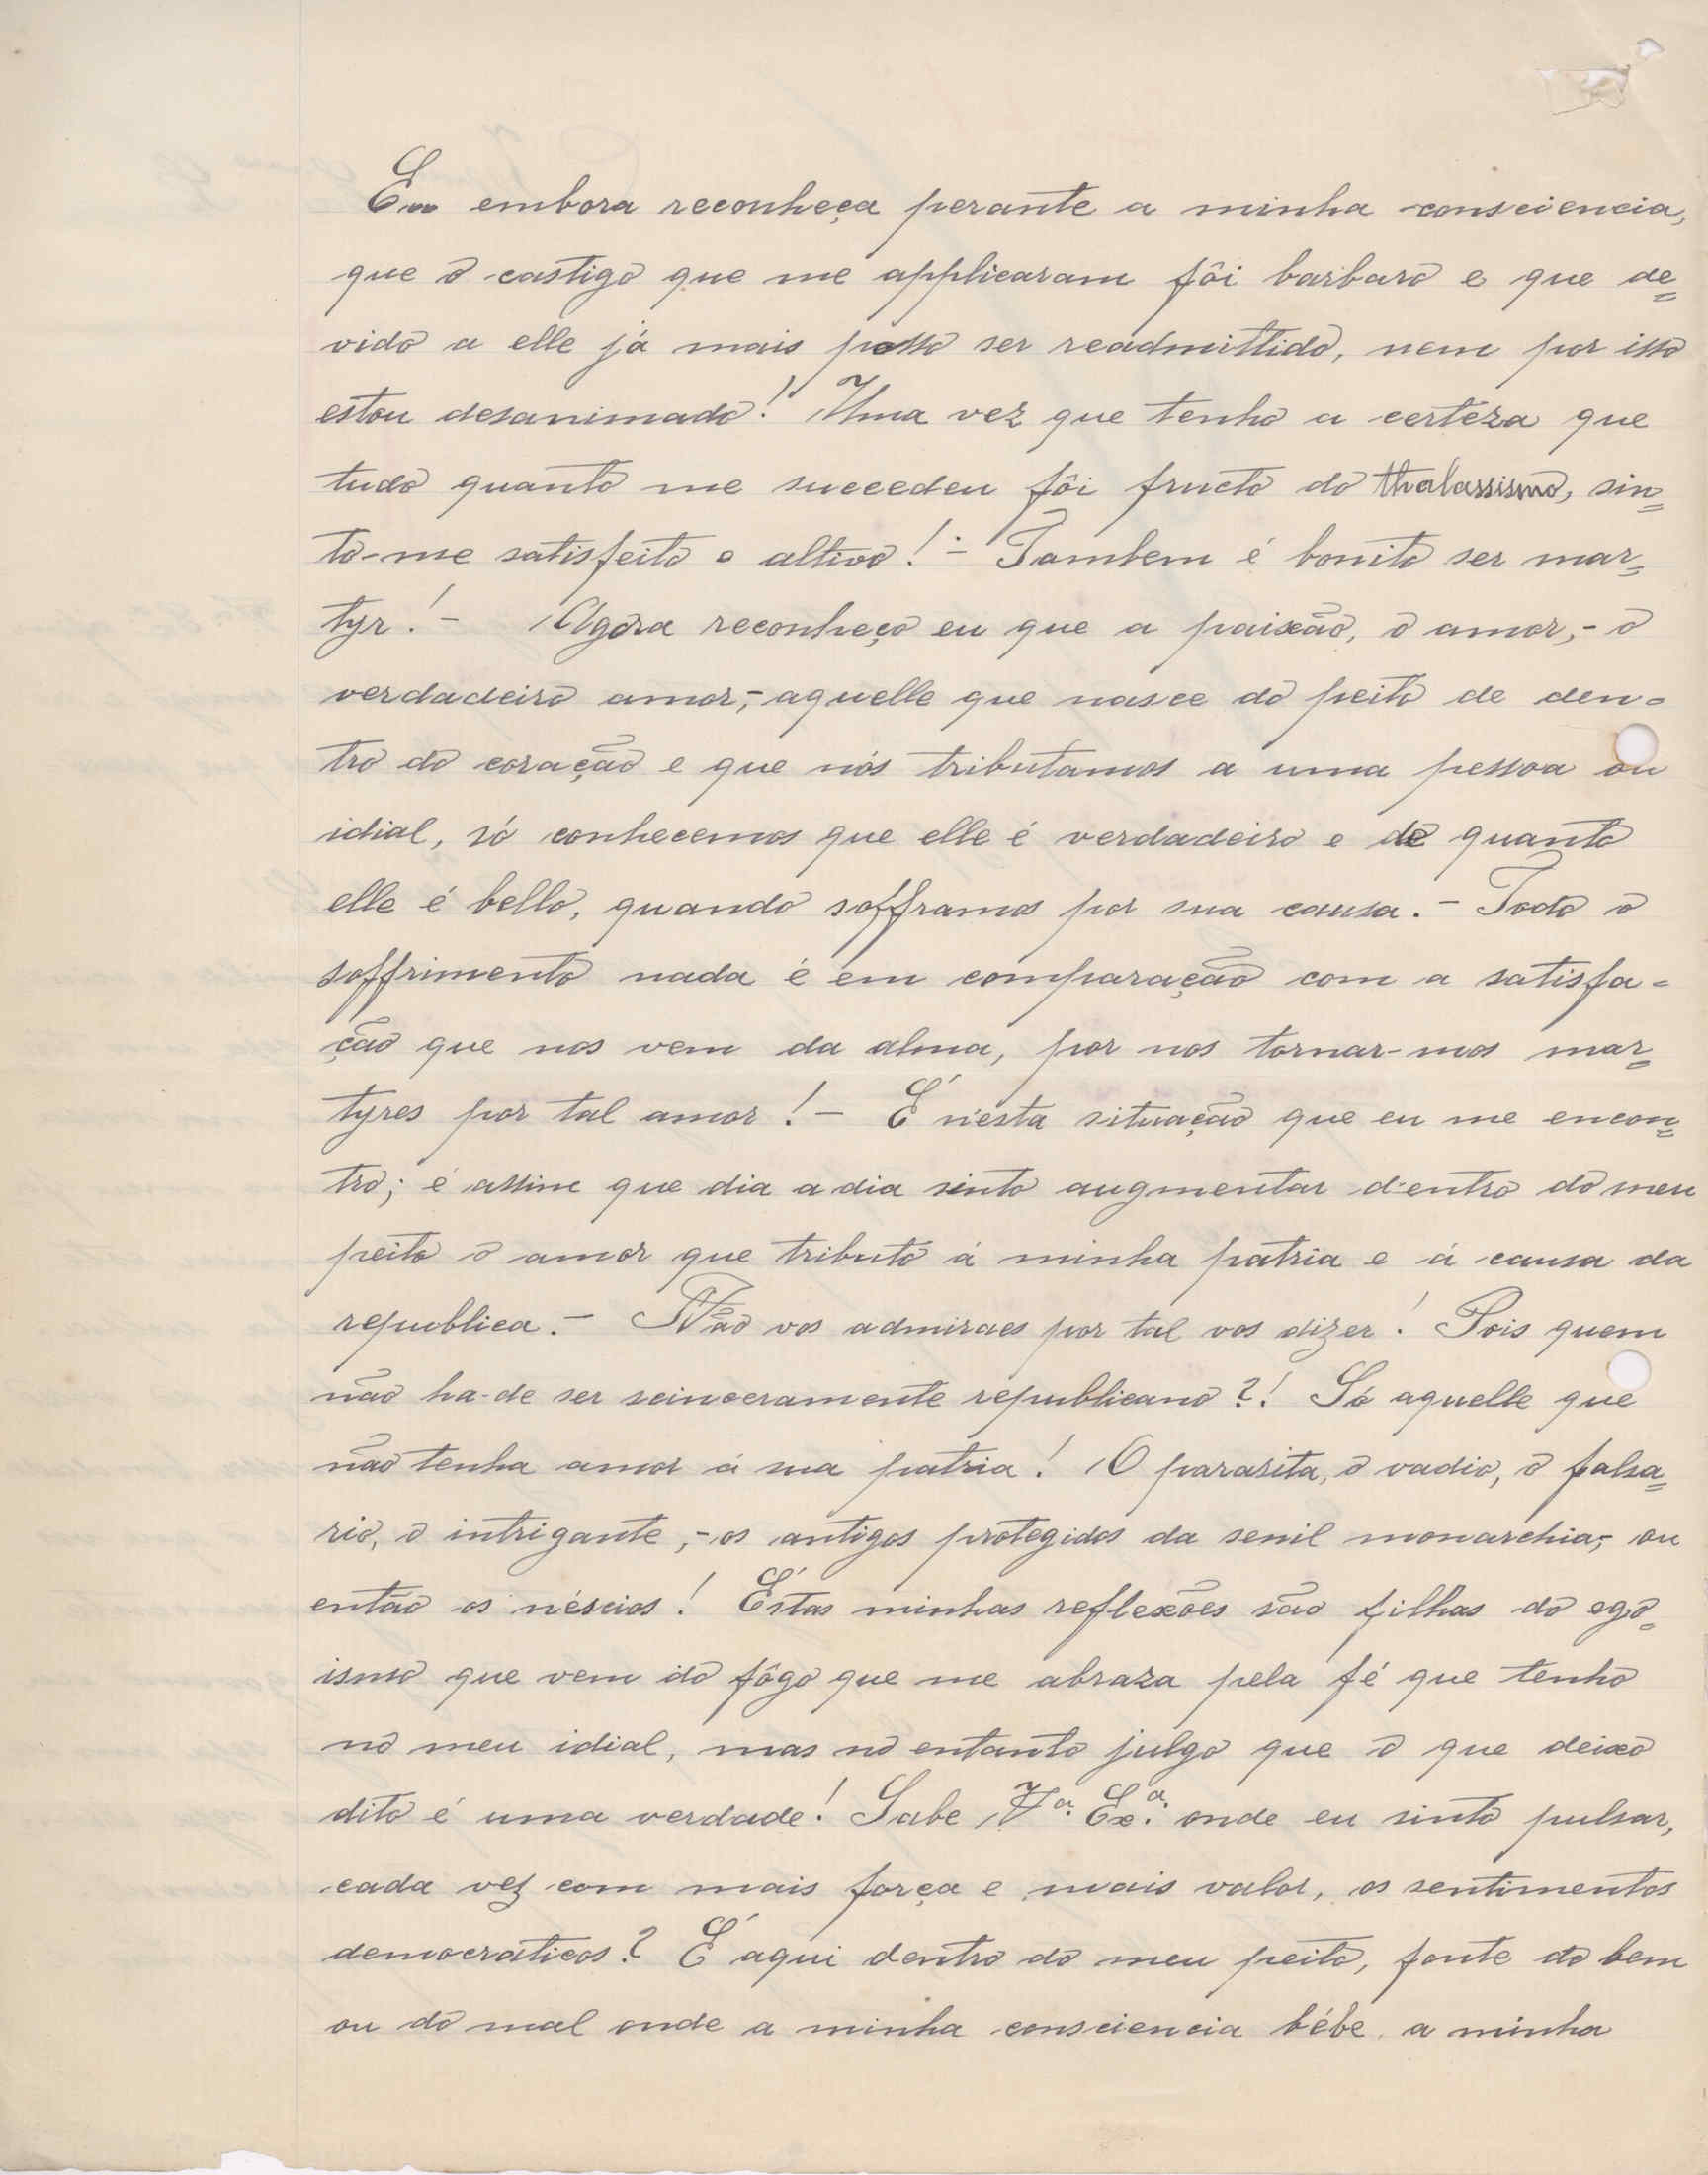 Eu embora reconheça perante a minha consciencia,
que o castigo que me applicaram fôi barbaro e que de=
vido a elle já mais posso ser readmittido, nem por isso
estou desanimado! Uma vez que tenho a certêza que
tudo quanto me succedeu fôi fructo do thalassismo, sin=
to-me satisfeito e altivo! - Tambem é bonito ser mar=
tyr! - Agora reconheço eu que a paixão, o amor, - o
verdadeiro amor, - aquelle que nasce do peito de den=
tro do coração e que nós tributamos a uma pessoa ou
idial, só conhecemos que elle é verdadeiro e de quanto
elle é bello, quando sofframos por sua causa. - Todo o
soffrimento nada é em comparação com a satisfa=
ção que nos vem da alma, por nos tornar-mos mar=
tyres por tal amor! - É n'esta situação que eu me encon=
tro; é assim que dia a dia sinto augmentar d'entro do meu
peito o amor que tributo á minha patria e á causa da
republica. - Não vos admiraes por tal vos dizer! Pois quem
não ha-de ser seinceramente republicano?! Só aquelle que
não tenha amor á sua patria! O parasita, o vadio, o falsa=
rio, o intrigante, - os antigos protegidos da senil monarchia, - ou
então os néscios! Éstas minhas reflexões são filhas do ego=
ismo que vem do fôgo que me abraza pela fé que tenho
no meu idial, mas no entanto julgo que o que deixo
dito é uma verdade! Sabe V.ª Ex.ª onde eu sinto pulsar,
cada vez com mais força e mais valor, os sentimentos
democráticos? É aqui dentro do meu peito, fonte do bem
ou do mal onde a minha consciencia bébe, a minha